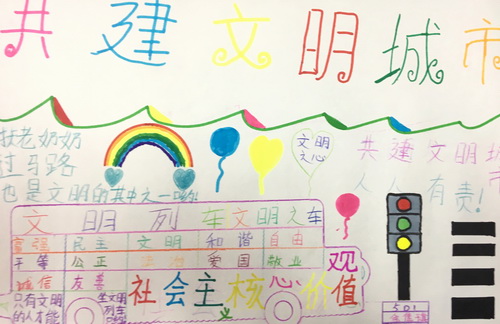 共建文明城市
扶老奶奶
过马路
也是文明的其中之一哟!
文明
之心
共建文明城
市
人人有责!
文明列车文明之车
富强 民主 文明 和谐 自由
平等 公正 法治 爱国 敬业
诚信 友善
社会主义核心价值观
只有文明
的人才能
坐文明
列车
501